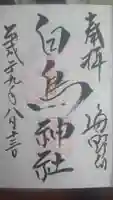 奉拝 海野宿
白鳥神社
平成二九年八月十三日